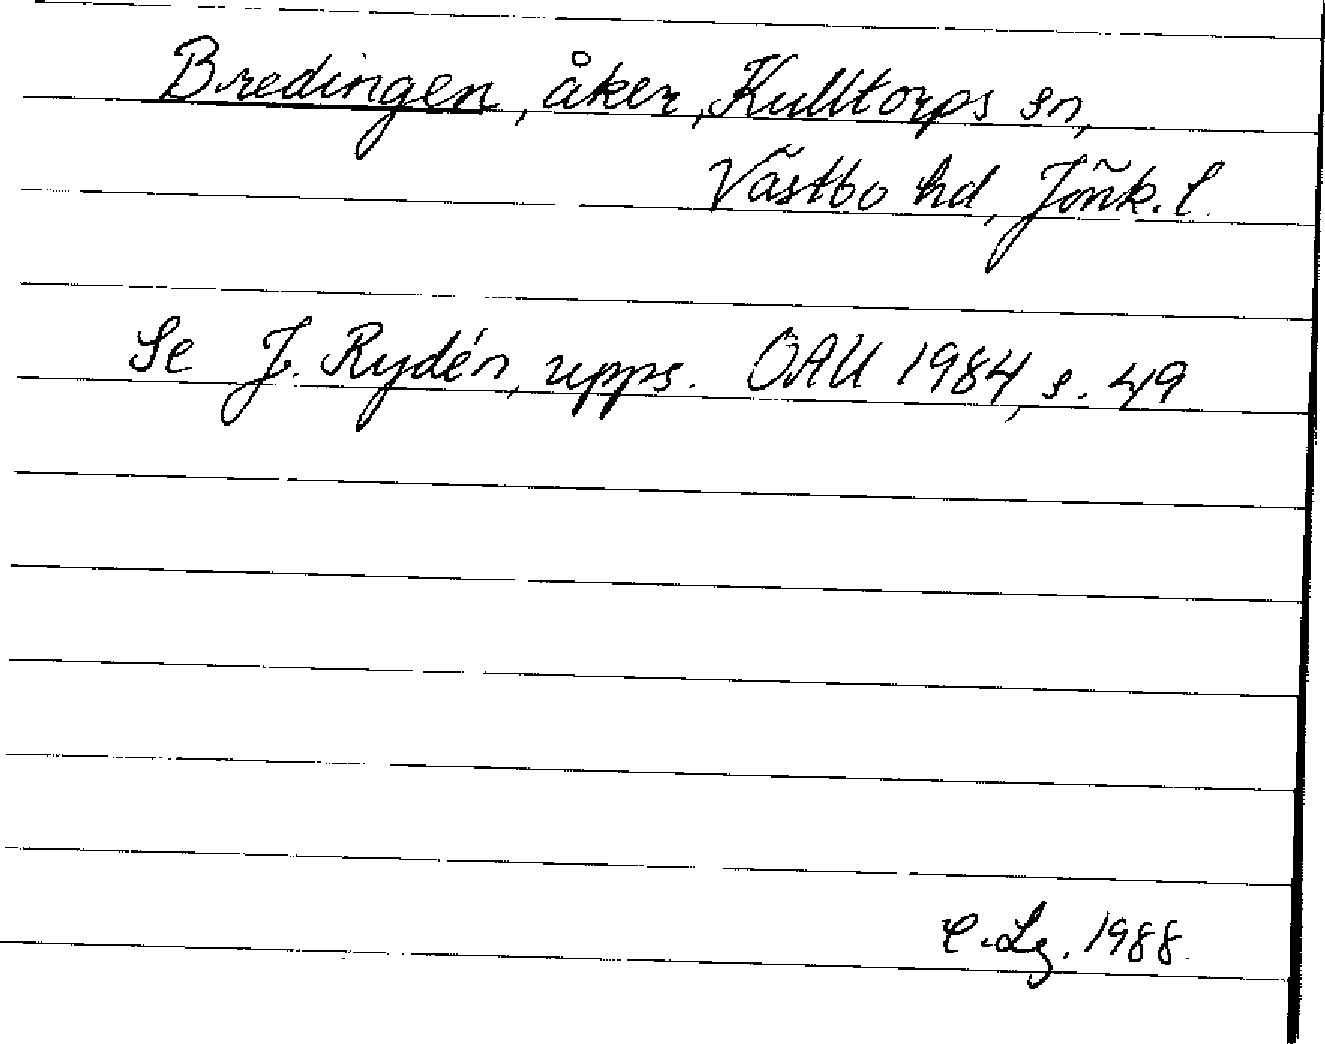 Bredingen, åker, Kulltorps sn,
Västbo hd, Jönk. l.
Se J. Rydén, upps. OAU 1984, s. 49
C. Lg. 1988.